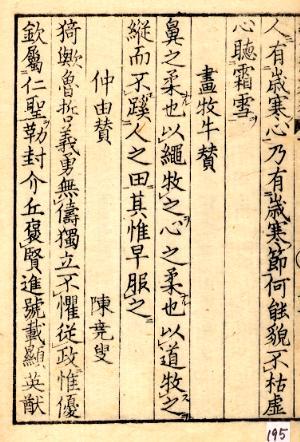 人有歲寒心乃有歲寒節何能貌不枯虛
心聽霜雪
畫牧牛賛
鼻之柔也以繩牧之心之柔也以道牧之
縱而不蹊人之田其惟早服之
仲由賛 陳堯叟
猗歟魯哲義勇無儔獨立不懼從政惟優
欽屬仁聖勒封介丘襃賢進號載顯英猷
195